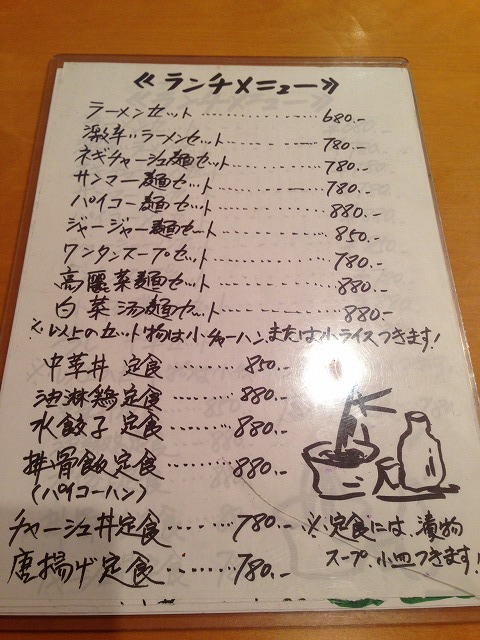 《ランチメニュー》
ラーメンセット ………… 680.-
激辛ラーメンセット ………… 780.-
ネギチャーシュー麺セット ………… 780.-
サンマー麺セット ………… 780.-
パイコー麺セット ………… 880.-
ジャージャー麺セット ………… 850.-
ワンタンスープセット ………… 780.-
高麗菜麺セット ………… 880.-
白菜湯麺セット ………… 880-
※以上のセット物は小チャーハンまたは小ライスつきます!
中華丼 定食 …… 850.-
油淋鶏定食 …… 880.-
水餃子 定食 …… 880.-
排骨飯定食 …… 880.-
(パイコーハン)
チャーシュ丼定食 …… 780.-
唐揚げ定食 …… 780.-
※定食には、漬物
スープ、小皿つきます!